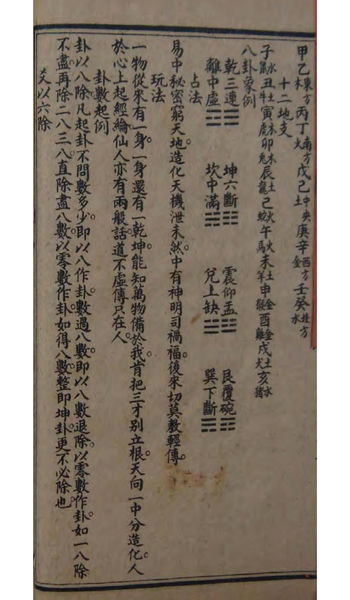 甲乙東方木丙丁南方火戊己中央土庚辛西方金壬癸北方水
十二地支
子水鼠丑土牛寅木虎卯木兔辰土龍巳火蛇午火馬未土羊申金猴酉金雞戌土犬亥水猪
八卦象例
乾三連☰ 坤六斷☷ 震仰盂☳ 艮覆碗☶
離中虛☲ 坎中滿☵ 兌上缺☱ 巽下斷☴
占法
易中秘密窮天地。造化天機泄未然。中有神明司禍福。後來切莫教輕傳。
玩法
一物從來有一身。一身還有一乾坤。能知萬物備於我。肯把三才別立根。天向一中分造化。人
於心上起經綸。仙人亦有兩般話。道不虛傳只在人。
卦數起例
卦以八除。凡起卦不問數多少。即以八作卦數。過八數。即以八數退除。以零數作卦。如一八除
不盡。再除二八三八。直除盡八數。以零數作卦。如得八數整。即坤卦。更不必除也。
爻以六除